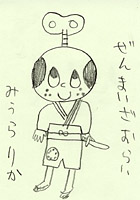 ぜんまいざむらい
みうらりか